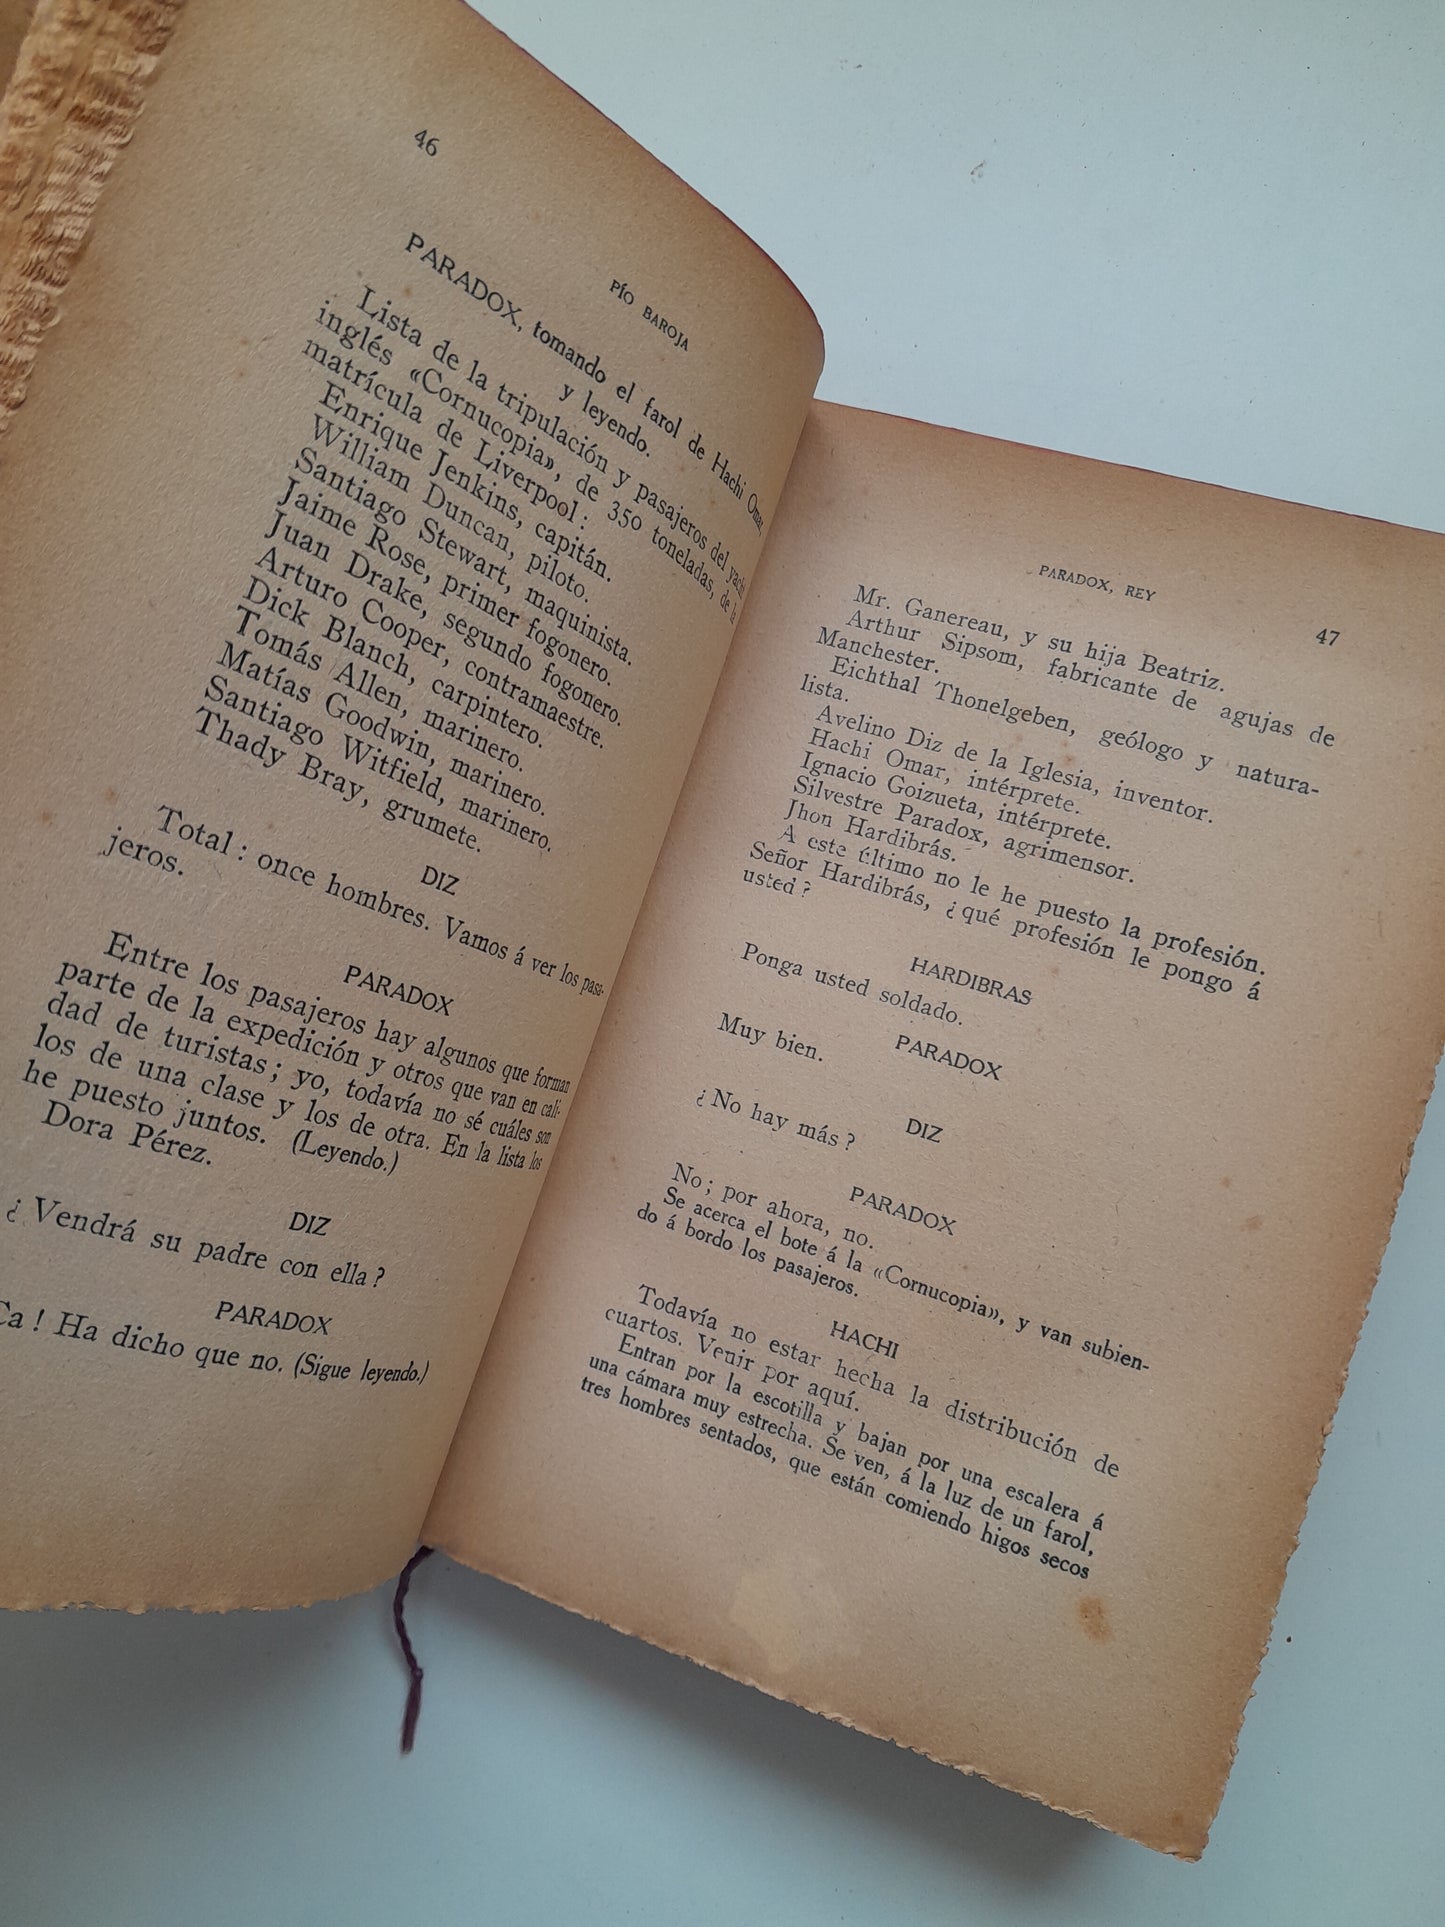 46
PÍO BAROJA
PARADOX, tomando el farol de Hachi Omar,
y leyendo.
Lista de la tripulación y pasajeros del yacht
inglés «Cornucopia», de 350 toneladas, de la
matrícula de Liverpool:
Enrique Jenkins, capitán.
William Duncan, piloto.
Santiago Stewart, maquinista.
Jaime Rose, primer fogonero.
Juan Drake, segundo fogonero.
Arturo Cooper, contramaestre.
Dick Blanch, carpintero.
Tomás Allen, marinero.
Matías Goodwin, marinero.
Santiago Witfield, marinero.
Thady Bray, grumete.
DIZ
Total: once hombres. Vamos á ver los pasa-
jeros.
PARADOX
Entre los pasajeros hay algunos que forman
parte de la expedición y otros que van en cali-
dad de turistas; yo, todavía no sé cuáles son
los de una clase y los de otra. En la lista los
he puesto juntos. (Leyendo.)
Dora Pérez.
DIZ
¿Vendrá su padre con ella?
PARADOX
Ca! Ha dicho que no. (Sigue leyendo.)
PARADOX, REY
47
Mr. Ganereau, y su hija Beatriz.
Arthur Sipsom, fabricante de agujas de
Manchester.
Eichthal Thonelgeben, geólogo y natura-
lista.
Avelino Diz de la Iglesia, inventor.
Hachi Omar, intérprete.
Ignacio Goizueta, intérprete.
Silvestre Paradox, agrimensor.
Jhon Hardibrás.
A este último no le he puesto la profesión.
Señor Hardibrás, ¿qué profesión le pongo á
usted?
HARDIBRAS
Ponga usted soldado.
PARADOX
Muy bien.
DIZ
¿No hay más?
PARADOX
No; por ahora, no.
Se acerca el bote á la «Cornucopia», y van subien-
do á bordo los pasajeros.
HACHI
Todavía no estar hecha la distribución de
cuartos. Venir por aquí.
Entran por la escotilla y bajan por una escalera á
una cámara muy estrecha. Se ven, á la luz de un farol,
tres hombres sentados, que están comiendo higos secos